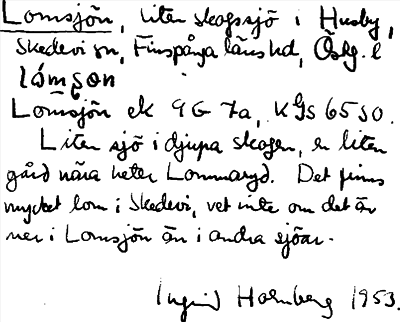 Lomsjön, liten skogssjö i Husby,
Skedevi sn, Finspånga läns hd, Östg. l
lómʃøn
Lomsjön ek 9G 7a, KGs 65 SO.
Liten sjö i djupa skogen, en liten
gård nära heter Lommaryd. Det finns
mycket lom i Skedevi, vet inte om det är
mer i Lomsjön än i andra sjöar.
Ingrid Hornberg 1953.